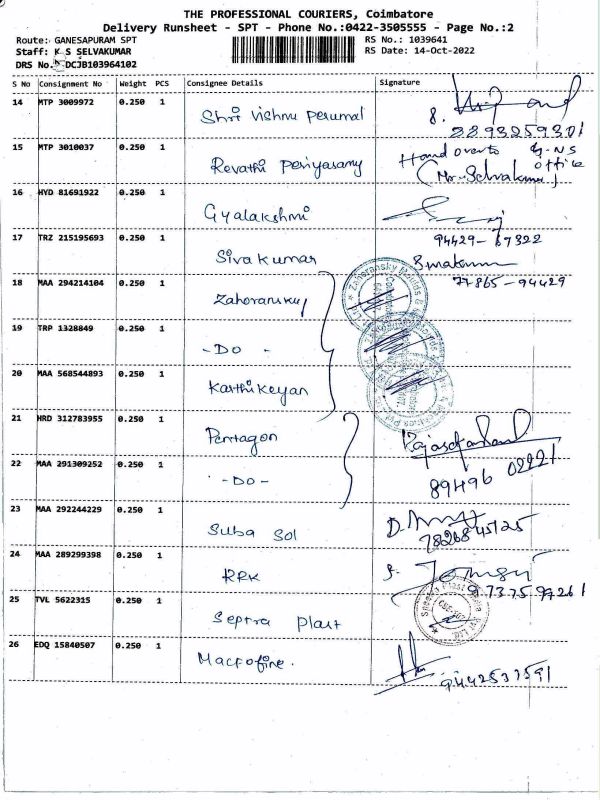 THE PROFESSIONAL COURIERS, Coimbatore
Delivery Runsheet - SPT - Phone No.:0422-3505555 - Page No.:2
Route: GANESAPURAM SPT RS No.: 1039641
Staff: K S SELVAKUMAR RS Date: 14-Oct-2022
DRS No. DCJB103964102
S No Consignment No Weight PCS Consignee Details Signature
14 MTP 3009972 0.250 1 Shri Vishnu Perumal
15 MTP 3010037 0.250 1 Revathi Periyasamy Hand over to
office
16 HYD 81691922 0.250 1 Gyalakshmi
94429-67322
17 TRZ 215195693 0.250 1 Sivakumar
77865-94429
18 MAA 294214104 0.250 1 Zahoransky
19 TRP 1328849 0.250 1 -DO-
20 MAA 568544893 0.250 1 Karthikeyan
21 HRD 312783955 0.250 1 Pentagon
89496 02221
22 MAA 291309252 0.250 1 -DO-
23 MAA 292244229 0.250 1 Suba Sol
24 MAA 289299398 0.250 1 RRK
25 TVL 5622315 0.250 1 Septra Plast
26 EDQ 15840507 0.250 1 Macrofine.